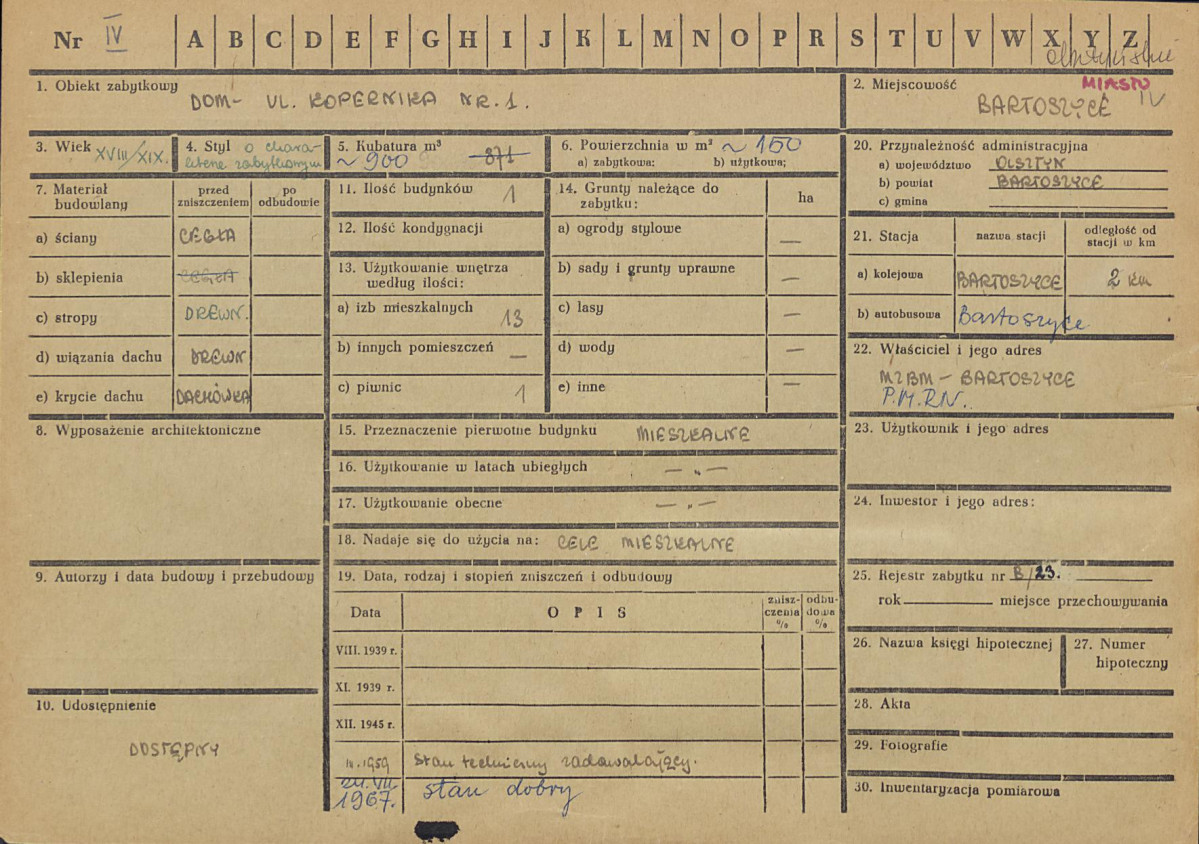 Nr IV A B C D E F G H I J K L M N O P R S T U V W X Y Z
1. Obiekt zabytkowy
DOM- UL. KOPERNIKA NR. 1.
2. Miejscowość MIASTO
BARTOSZYCE IV
3. Wiek XVIII/XIX.
4. Styl o chara-
kterze zabytkowym
5. Kubatura m³
~ 900 871
6. Powierzchnia w m² ~ 150
a) zabytkowa; b) użytkowa;
7. Materiał budowlany
przed zniszczeniem
po odbudowie
a) ściany CEGŁA
b) sklepienia CEGŁA
c) stropy DREWN.
d) wiązania dachu DREWN
e) krycie dachu DACHÓWKA
8. Wyposażenie architektoniczne
9. Autorzy i data budowy i przebudowy
10. Udostępnienie
DOSTĘPNY
11. Ilość budynków 1
12. Ilość kondygnacji
13. Użytkowanie wnętrza
według ilości:
a) izb mieszkalnych 13
b) innych pomieszczeń —
c) piwnic 1
14. Grunty należące do
zabytku: ha
a) ogrody stylowe —
b) sady i grunty uprawne —
c) lasy —
d) wody —
e) inne —
15. Przeznaczenie pierwotne budynku MIESZKALNE
16. Użytkowanie w latach ubiegłych — „ —
17. Użytkowanie obecne — „ —
18. Nadaje się do użycia na: CELE MIESZKALNE
19. Data, rodzaj i stopień zniszczeń i odbudowy
Data OPIS znisz-
czenia
% odbu-
dowa
%
VIII. 1939 r.
XI. 1939 r.
XII. 1945 r.
1959 Stan techniczny zadawalający.
24. VII.
1967. stan dobry
20. Przynależność administracyjna
a) województwo OLSZTYN
b) powiat BARTOSZYCE
c) gmina
21. Stacja nazwa stacji odległość od
stacji w km
a) kolejowa BARTOSZYCE 2 km
b) autobusowa Bartoszyce
22. Właściciel i jego adres
MZBM – BARTOSZYCE
P.M.R.N.
23. Użytkownik i jego adres
24. Inwestor i jego adres:
25. Rejestr zabytku nr B/23.
rok miejsce przechowywania
26. Nazwa księgi hipotecznej
27. Numer
hipoteczny
28. Akta
29. Fotografie
30. Inwentaryzacja pomiarowa